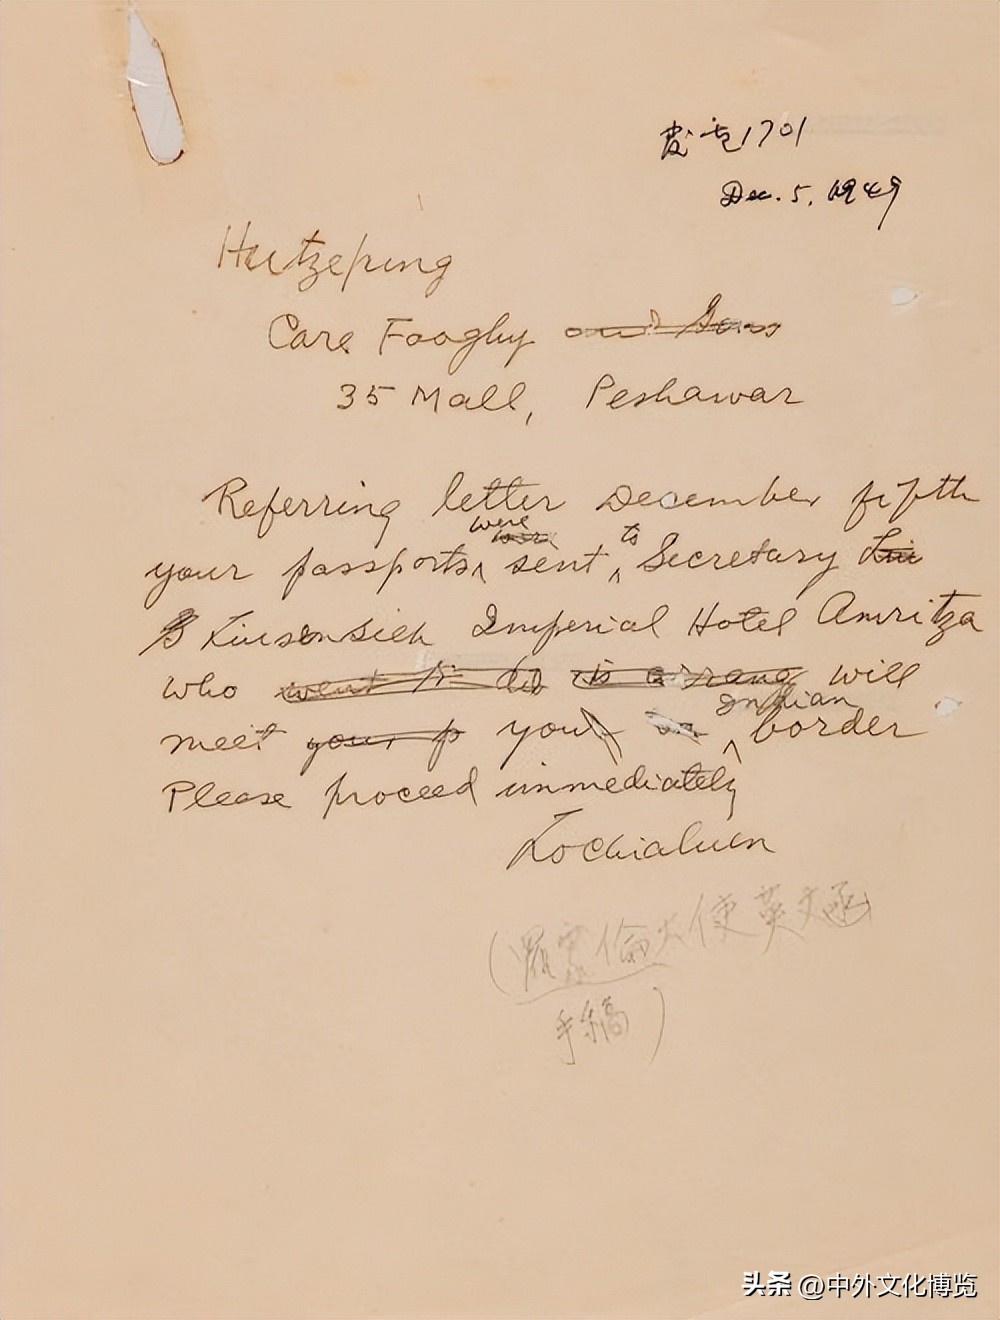 发电1701
Dec. 5, 1949
Hutzeping
Care Fooghy and Sons
35 Mall, Peshawar
Referring letter December fifth
were
your passports sent to Secretary Liu
Liusonsieh Imperial Hotel Amritza
who went to will
Indian
meet your you border
Please proceed immediately
Lochialuen
(羅家倫大使英文函
手稿)
头条 @中外文化博览